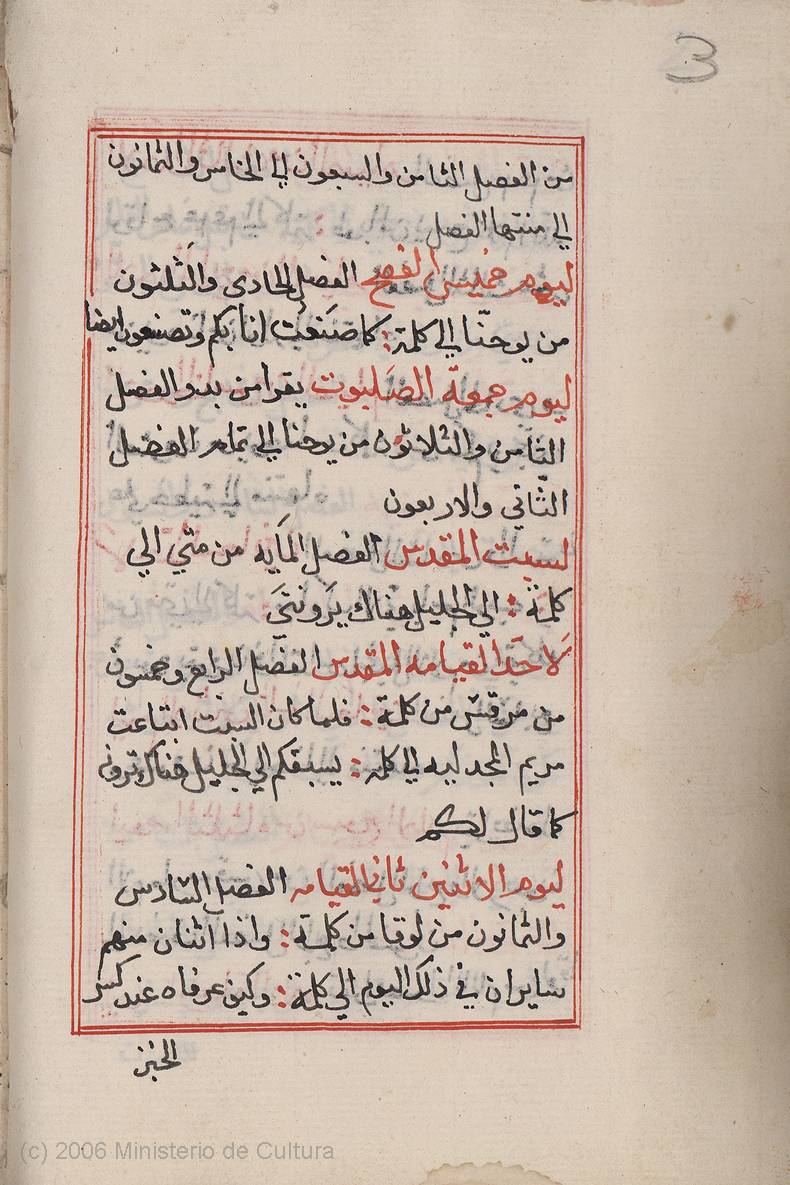 3
من الفصل الثامن والسبعون الي الخامس والثمانون
الي منتها الفصل
ليوم خميس الفصح الفصل الحادى والثلثون
من يوحنّا الي كلمة: كما صَنَعْت انا بكم وتصنعون ايضا
ليوم جمعة الصَلبوت يقرا من بدو الفصل
الثامن والثلاثون من يوحنا الي تمام الفصل
الثّاني والاربعون
لسبت المقدس الفصل المَايه من متّي الي
كلمة: الي الجليل هناك يَرَونَنيَ
لاحدَ القيامه المقدس الفصل الرابع وخمسون
من مرقسَ من كلمة: فلما كان السبت ابتاعت
مريم المجدليه الي كلمة: يسبقكم الي الجليل هناك ترونه
كما قال لكم
ليوم الاثنين ثاني القيامه الفصل السّادس
والثمانون من لوقا من كلمة: واذا اثنان منهم
سايران في ذلك اليوم الي كلمة: وكيف عرفاه عند كسر
الخبز
(c) 2006 Ministerio de Cultura